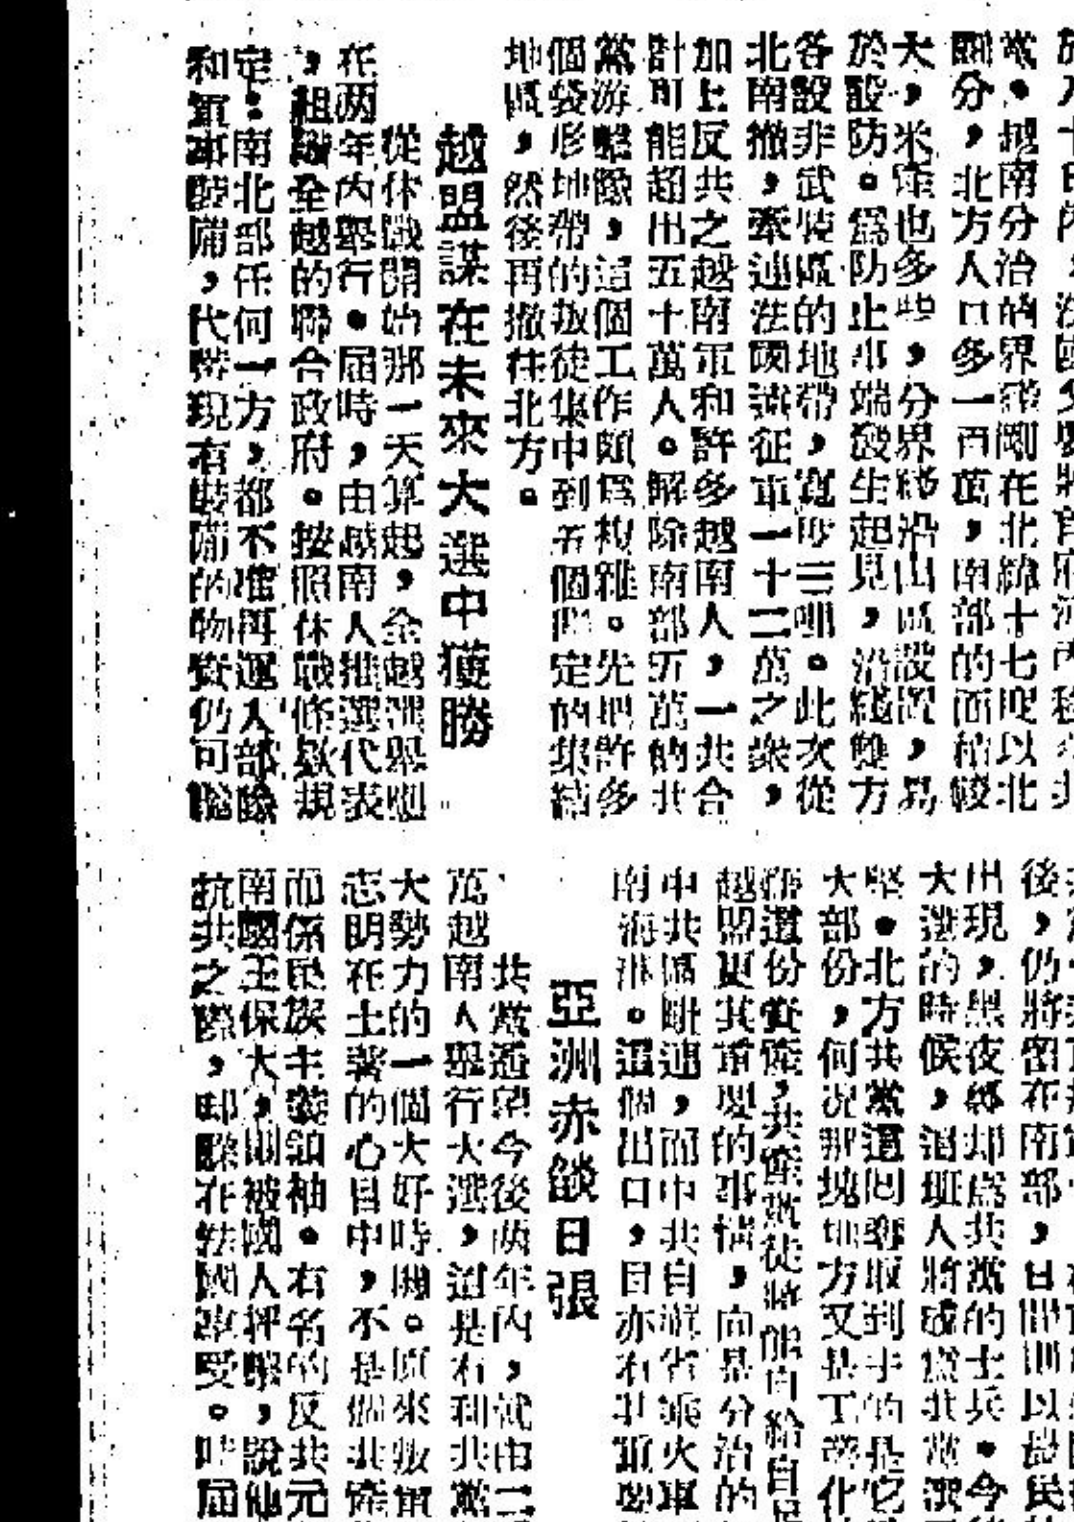 黨。越南分治的界綫剛在北緯十七度以北
劃分，北方人口多一百萬，南部的面積較
大，米產也多些，分界綫沿山區設置，易
於設防。為防止事端發生起見，沿綫雙方
各設非武裝區的地帶，寬度三哩。此次從
北南撤，牽連法國遠征軍一十二萬之衆，
加上反共之越南軍和許多越南人，一共合
計可能超出五十萬人。解除南部五萬的共
黨游擊隊，這個工作頗爲複雜。先把許多
個袋形地帶的叛徒集中到五個指定的集結
地區，然後再撤往北方。
越盟謀在未來大選中獲勝
從休戰開始那一天算起，全越選舉應
在两年内舉行。屆時，由越南人推選代表
，組織全越的聯合政府。按照休戰條款規
定：南北部任何一方，都不准再運入部隊
和軍事裝備，代替現有裝備的物資仍可
後，仍將留在南部，日間則以
出現，黑夜都却爲共黨的士兵。今
大選的時候，這班人將成爲共黨
堅。北方共黨還回奪取到手的是它
大部份，何況那塊地方又是工業化
這份資產，共產黨徒將能自給自足
越盟更其重要的事情，向是分治的
中共區毗連，而中共自滇省乘火車
南海港。這個出口，目亦有
亞洲赤燄日張
共黨透望今後两年内，就由二
萬越南人舉行大選，這是有利共黨
大勢力的一個大好時機。原來叛軍
志明在土著的心目中，不是個共產
而係民族主義領袖。有名的反共元
南國王保大，則被國人抨擊，說他
抗共之際，却躲在法國享受。